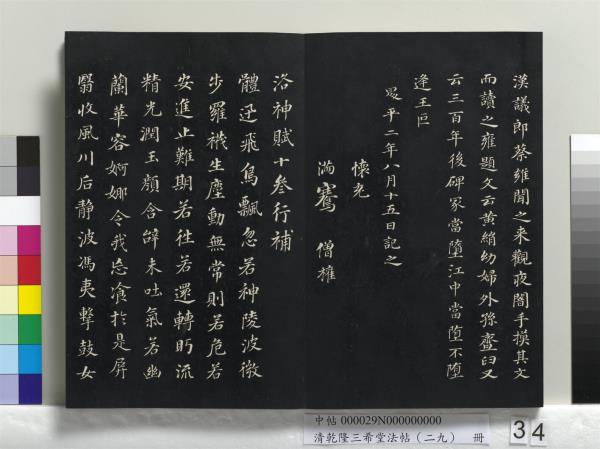 漢議郎蔡雍聞之来觀夜闇手摸其文
而讀之雍題文云黄絹幼婦外孫虀臼又
云三百年後碑冢當墮江中當墮不墮
逢王叵
昇平二年八月十五日記之
懷充
滿騫 僧權
洛神賦十叁行補
體迅飛鳧飄忽若神陵波微
步羅襪生塵動無常則若危若
安進止難期若往若還轉眄流
精光潤玉顔含辭未吐氣若幽
蘭華容婀娜令我忘飡於是屏
翳收風川后静波馮夷擊鼓女
中帖 000029N000000000
清乾隆三希堂法帖（二九） 冊
34